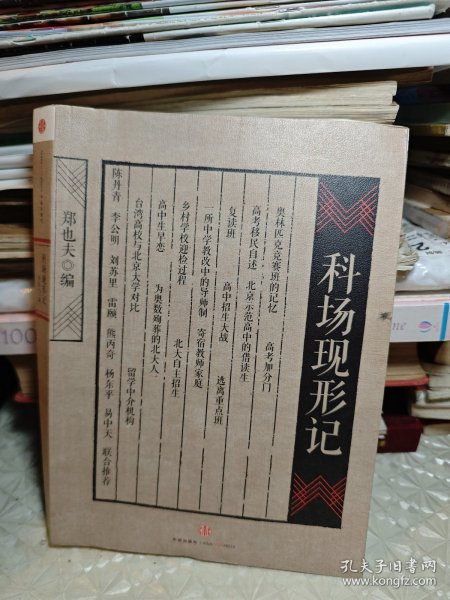 科场现形记
奥林匹克竞赛班的记忆 高考加分门
高考移民自述 北京示范高中的借读生
复读班 高中招生大战 逃离重点班
一所中学教改中的导师制 寄宿教师家庭
乡村学校迎检过程 北大自主招生
高中生早恋 为奥数殉葬的北大人
台湾高校与北京大学对比 留学中介机构
陈丹青 李公明 刘苏里 雷颐 熊丙奇 杨东平 易中天 联合推荐
郑也夫◎编
中信出版社
孔夫子旧书网
www.kongfz.com